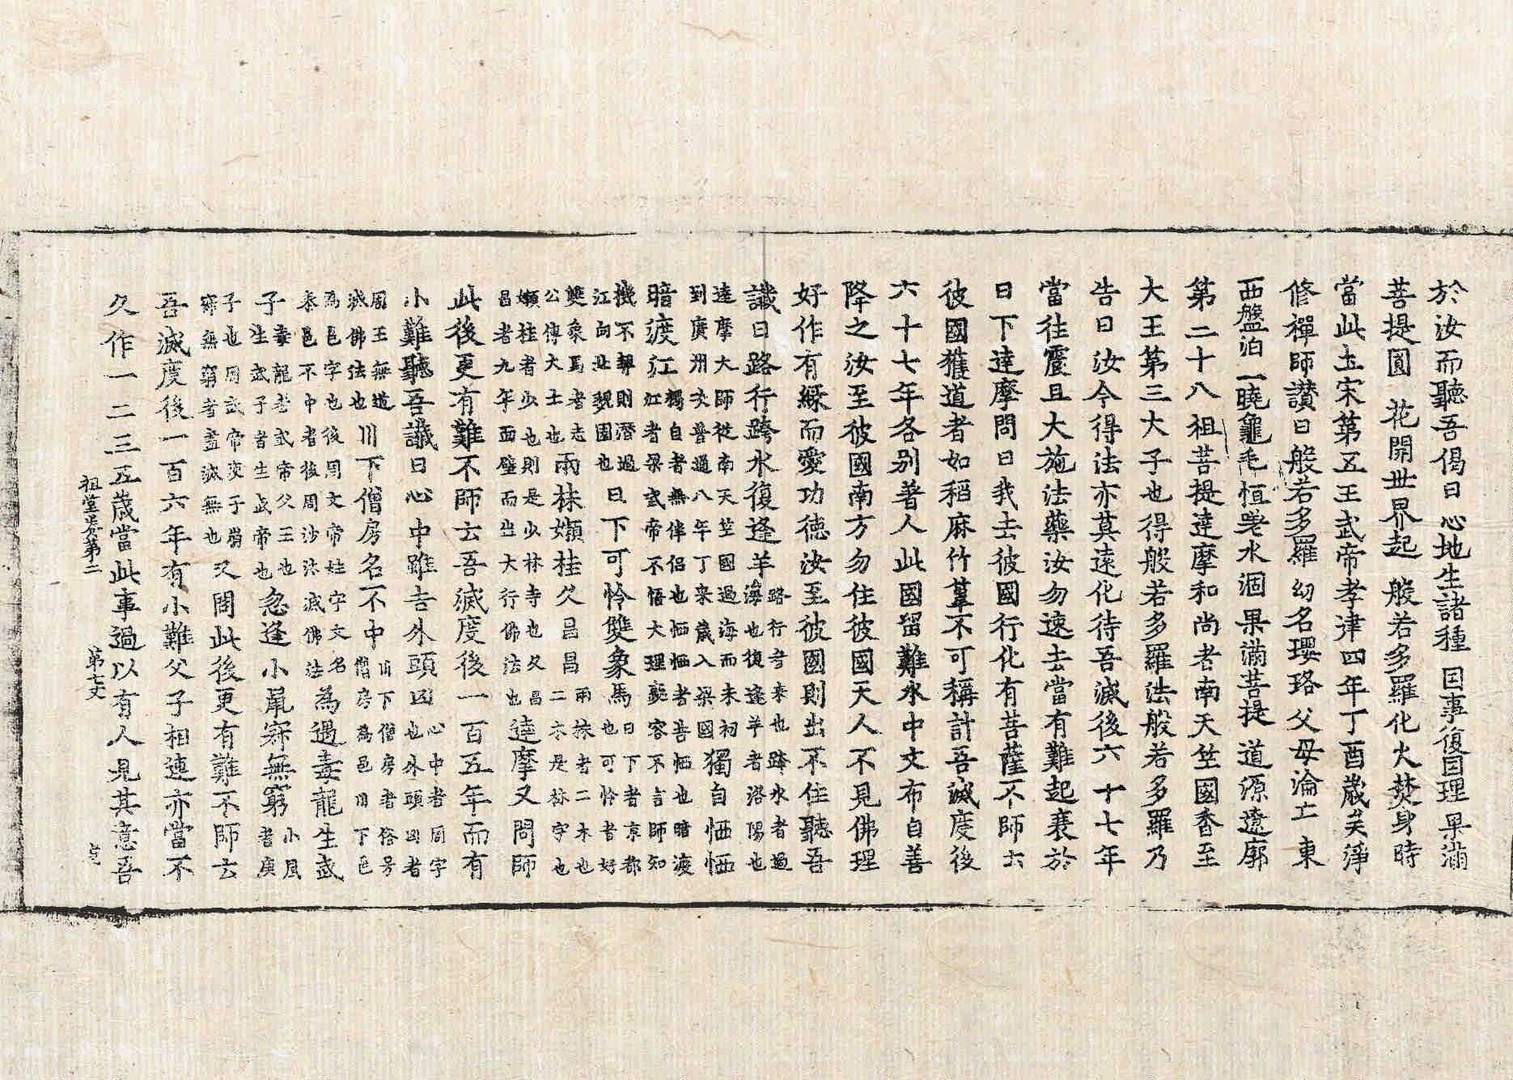 於汝而聽吾偈曰 心地生諸種 因事復因理 果滿
菩提圓 花開世界起 般若多羅化火焚身時
當此土宋第五王武帝孝津四年丁酉歲矣淨
修禪師讚曰 般若多羅 幼名瓔珞 父母淪亡 東
西盤泊 一曉龜毛 恒 水涸 果滿菩提 道源遼廓
第二十八祖菩提達摩和尚者南天竺國香至
大王第三大子也得般若多羅法般若多羅乃
告曰汝今得法亦莫遠化待吾滅後六十七年
當往震旦大施法藥汝勿速去當有難起衰於
日下達摩問曰我去彼國行化有菩薩不師云
彼國獲道者如稻麻竹葦不可稱計吾滅度後
六十七年各別著人此國留難水中文布自善
降之汝至彼國南方勿住彼國天人不見佛理
好作有緣而愛功德汝至彼國則出不住聽吾
讖曰路行跨水復逢羊路行者來也跨水者過
海也復逢羊者洛陽也
達摩大師從南天竺國過海而來初
到廣州次普通八年丁未歲入梁國獨自恓恓
暗渡江獨自者無伴侶也恓恓者善恓也暗渡
江者梁武帝不悟大理 容不言師知
機不契則潛過
江向北魏國也日下可怜雙象馬日下者京都
也可怜者好
雙象馬者志
公傅大士也兩株嫩桂久昌昌兩株者二木也
二木是林字也
嫩桂者少也則是少林寺也久昌
昌者九年面壁而出大行佛法也達摩又問師
此後更有難不師云吾滅度後一百五年而有
小難聽吾讖曰心中雖吉外頭凶心中者周字
也外頭凶者
周王無道
滅佛法也川下僧房名不中川下僧房者俗号
僧房為邑川下邑
為邕字也後周文帝姓宇文名
泰邕不中者後周沙汰滅佛法為遇毒龍生武
子毒龍者武帝父王也
生武子者生武帝也忽逢小鼠寂無窮小鼠
者庚
子也周武帝夾子崩
寂無窮者盡滅無也又問此後更有難不師云
吾滅度後一百六年有小難父子相連亦當不
久作一二三五歲當此事過以有人見其意吾
祖堂  第二 第七丈